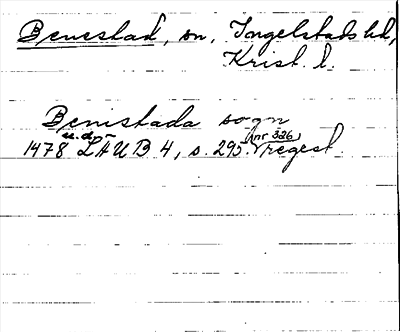 Benestad, sn, Ingelstads hd,
Krist. l.
Benistada sogn
u.d.
1478 LAUB 4, s. 295. (nr 326) regest.